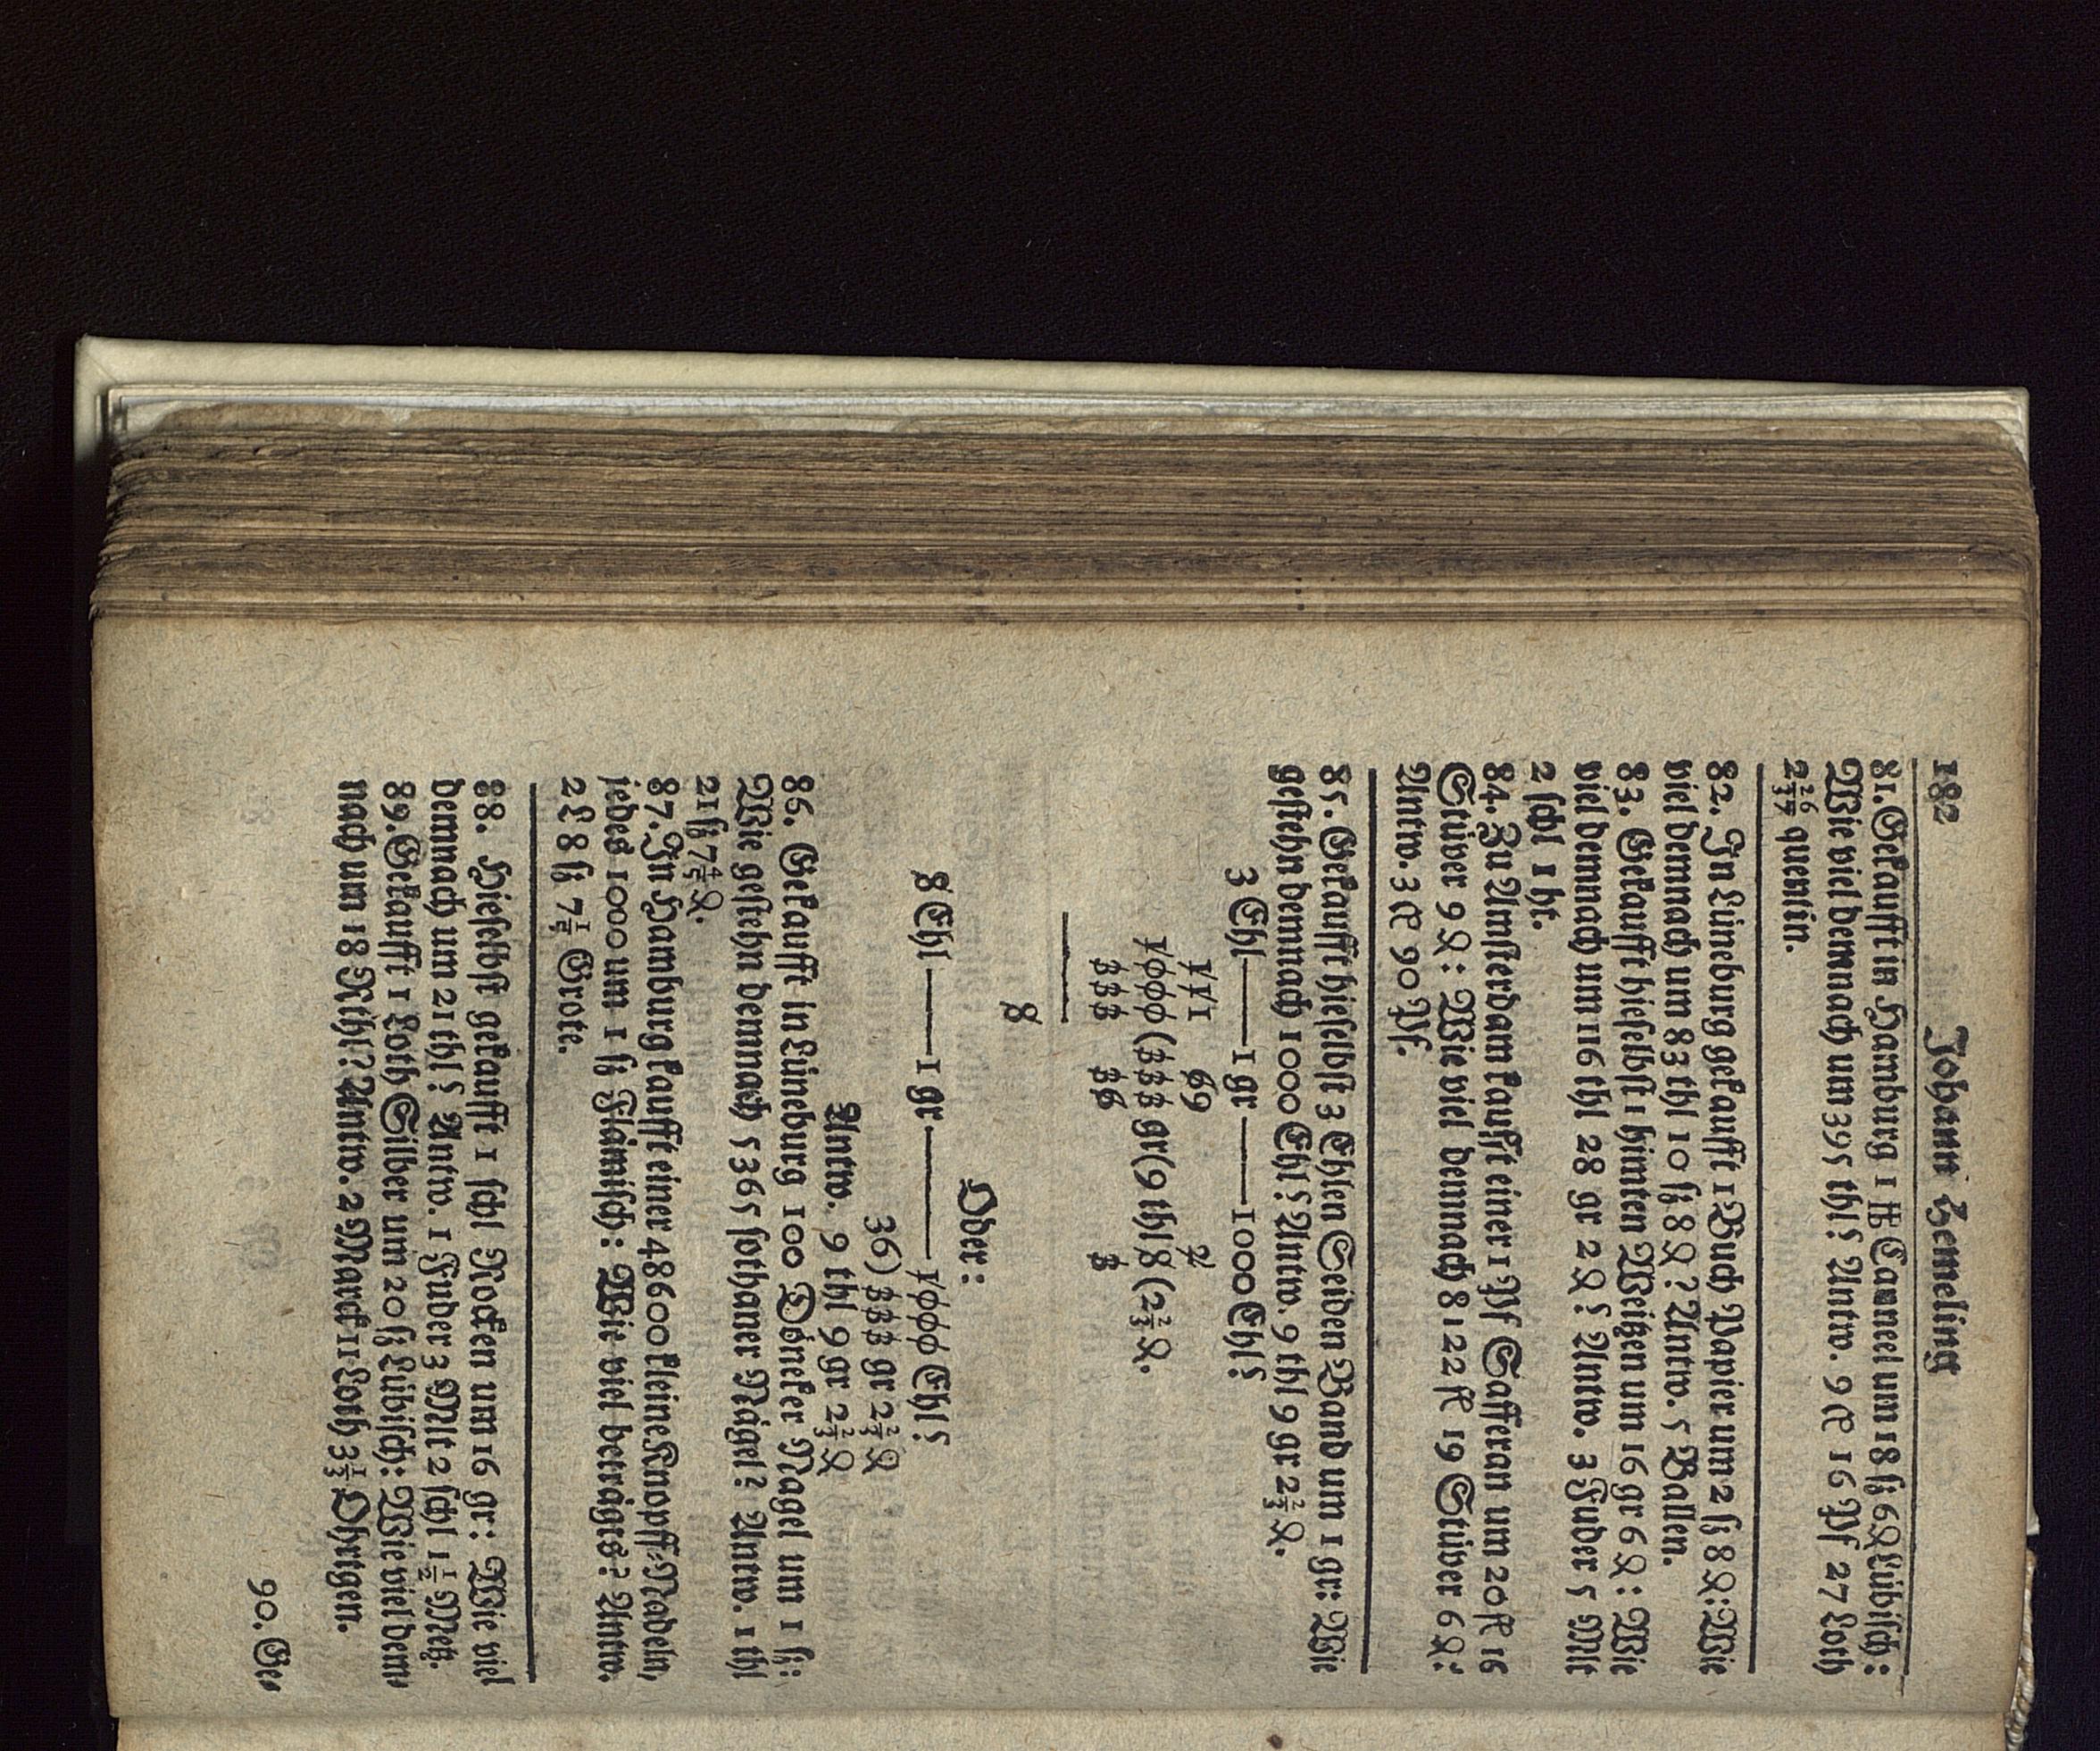 182 Johann Hemeling
81. Gekaufft in Hamburg 1 ℔ Caneel um 18 ß 6 ₰ Lübisch:
Wie viel demnach um 395 thl? Antw. 9 C 16 Pf 27 Loth
2 26/37 quentin.
82. In Lüneburg gekaufft 1 Buch Papier um 2 ß 8 ₰: Wie
viel demnach um 83 thl 10 ß 8 ₰? Antw. 5 Ballen.
83. Gekaufft hieselbst 1 Himten Weitzen um 16 gr 6 ₰: Wie
viel demnach um 116 thl 28 gr 2 ₰? Antw. 3 Fuder 5 Mlt
2 schl 1 ht.
84. Zu Amsterdam kaufft einer 1 Pf Safferan um 20 fl 16
Stüver 9 ₰: Wie viel demnach 8122 fl 19 Stüver 6 ₰:
Antw. 3 C 90 Pf.
85. Gekaufft hieselbst 3 Ehlen Seiden Band um 1 gr: Wie
gestehn demnach 1000 Ehl? Antw. 9 thl 9 gr 2 2/3 ₰.
3 Ehl — 1 gr — 1000 Ehl?
1000 (333 gr (9 thl 8 (2 2/3 ₰.
8
Oder:
8 Ehl — 1 gr — 1000 Ehl?
36) 333 gr 2 2/3 ₰
Antw. 9 thl 9 gr 2 2/3 ₰
86. Gekaufft in Lüneburg 100 Dönker Nagel um 1 ß:
Wie gestehn demnach 5365 sothaner Nägel? Antw. 1 thl
21 ß 7 4/5 ₰.
87. In Hamburg kaufft einer 48600 kleine Knopff-Nadeln,
jedes 1000 um 1 ß Flämisch: Wie viel beträgts? Antw.
2 L 8 ß 7 1/5 Grote.
88. Hieselbst gekaufft 1 schl Rocken um 16 gr: Wie viel
demnach um 21 thl? Antw. 1 Fuder 3 Mlt 2 schl 1 1/2 Metz.
89. Gekaufft 1 Loth Silber um 20 ß Lübisch: Wie viel dem-
nach um 18 Rthl? Antw. 2 Marck 11 Loth 3 1/5 Ohrtgen.
90. Ge-